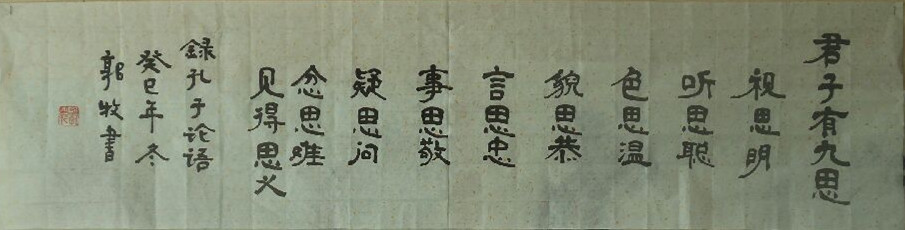 君子有九思
视思明
听思聪
色思温
貌思恭
言思忠
事思敬
疑思问
忿思难
见得思义
録孔子论语
癸巳年冬
郭牧书